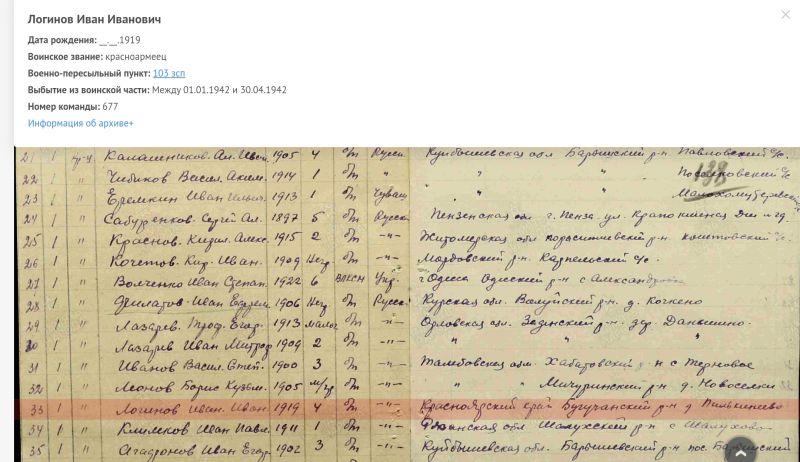 Логинов Иван Иванович
Дата рождения: __.__.1919
Воинское звание: красноармеец
Военно-пересыльный пункт: 103 зсп
Выбытие из воинской части: Между 01.01.1942 и 30.04.1942
Номер команды: 677
Информация об архиве+
21 1 Калашников. Ал. Иван. 1905 4 б/п Русск. Куйбышевская обл Барышский р-н Павловский с/с.
138
22 1 " Чибиков Васил. Аким. 1914 1 б/п " " "
23 1 " Еремкин Иван 1913 1 б/п Чуваш " "
24 1 " Сабуренков. Сергей Ал. 1897 5 б/п Русск Пензенская обл г. Пенза. ул.
25 1 " Краснов. Кирил. Алекс. 1915 2 б/п -"- Житомирская обл р-н с/с.
26 1 " Кочетов. Кир. Иван. 1909 Негр б/п -"- Мордовский р-н. с/с.
27 1 " Волченко Иван Степан. 1922 6 ВЛКСМ Укр. г Одесса Одесский р-н с
28 1 " Филатов Иван 1906 Негр б/п Русск. Курская обл. Валуйский р-н. д.
29 1 " Лазарев. Троф. Егор. 1913 Малог б/п -"- Орловская обл. р-н. дер.
30 1 " Лазарев Иван Митроф 1909 2 б/п -"- " "
31 1 " Иванов Васил. Степ. 1900 3 б/п -"- Тамбовская обл. р-н с Терновое
32 1 " Леонов Борис Кузьм. 1905 м/гр б/п -"- " " Мичуринский р-н д. Новоселки
33 1 " Логинов Иван. Иван. 1919 4 б/п -"- Красноярский край Богучанский р-н д
34 1 " Климков Иван Павл. 1911 1 б/п -"- обл р-н с
35 1 " Агафонов Иван Егор 1902 3 б/п -"- Куйбышевская обл. Барышевский р-н пос.